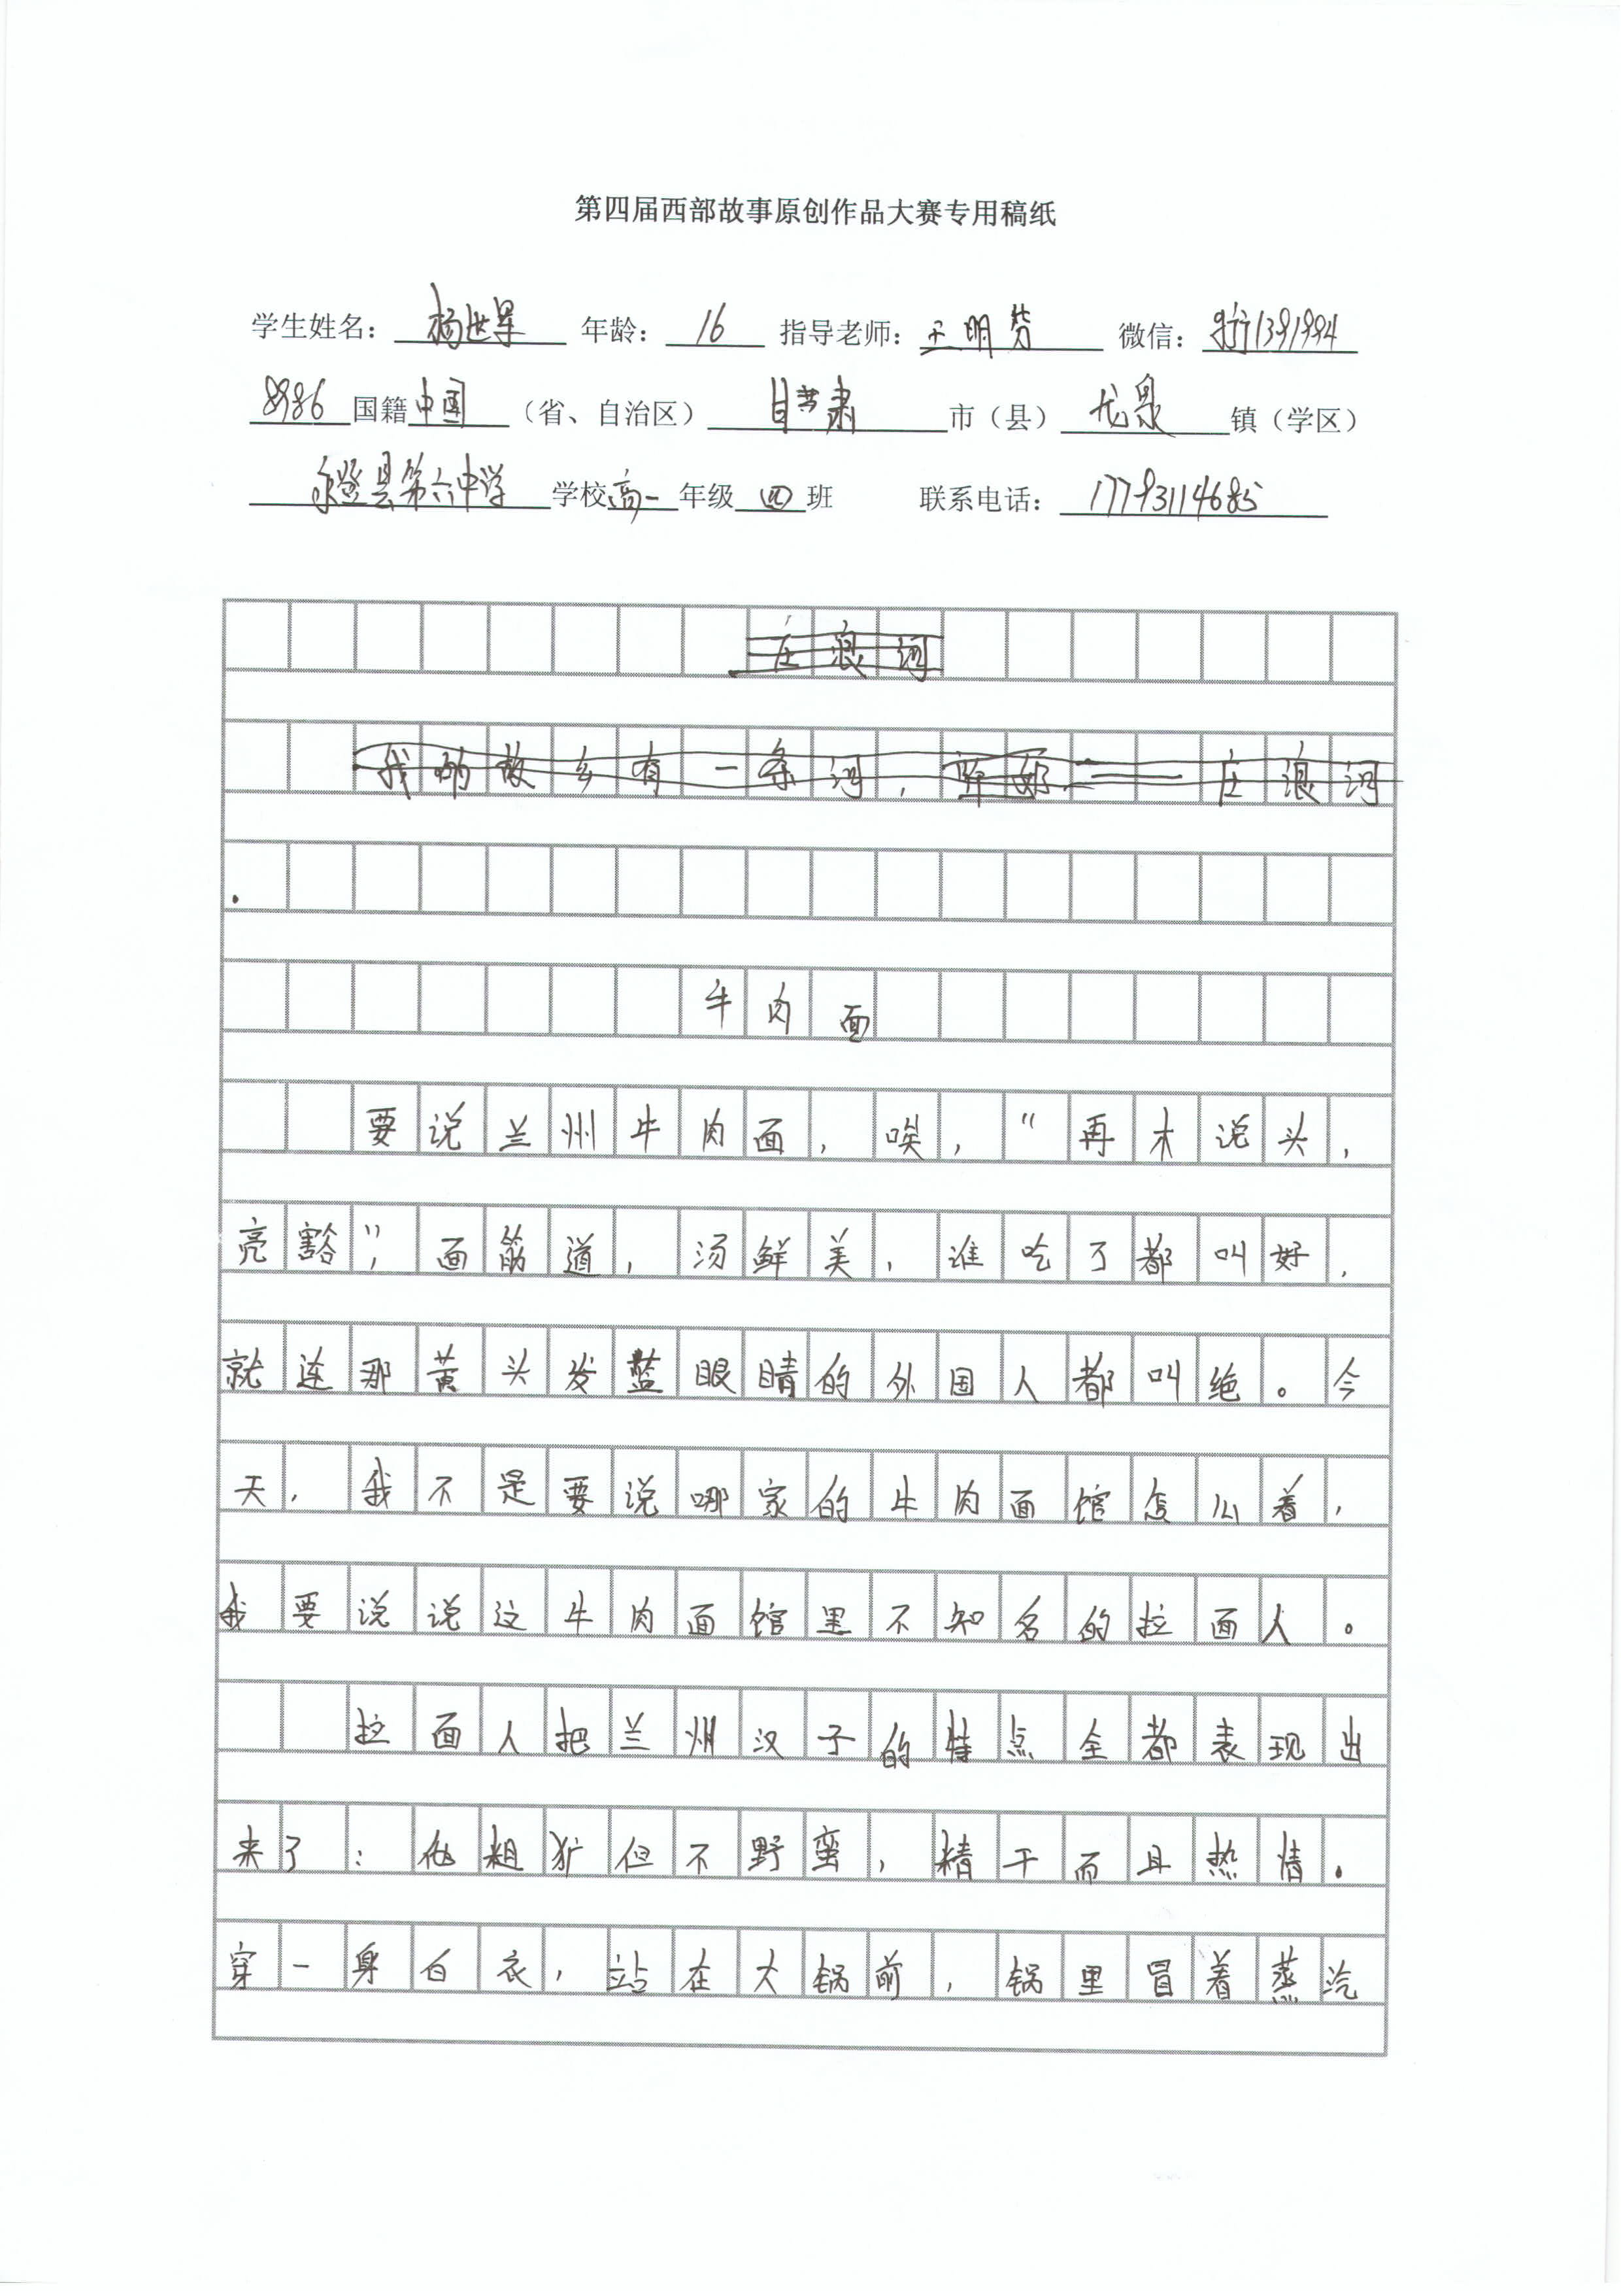 第四届西部故事原创作品大赛专用稿纸
学生姓名： 杨世 年龄： 16 指导老师： 王明芳 微信： 1391994
8986 国籍 中国 （省、自治区） 甘肃 市（县） 龙泉 镇（学区）
永登县第六中学 学校 高一 年级 四 班 联系电话： 17793114685
庄浪河
我的故乡有一条河， —— 庄浪河
。
牛肉面
要说兰州牛肉面，唉，“再木说头，
亮豁”，面筋道，汤鲜美，谁吃了都叫好，
就连那黄头发蓝眼睛的外国人都叫绝。今
天，我不是要说哪家的牛肉面馆怎么着，
我要说说这牛肉面馆里不知名的拉面人。
拉面人把兰州汉子的特点全都表现出
来了：他粗犷但不野蛮，精干而且热情。
穿一身白衣，站在大锅前，锅里冒着蒸汽